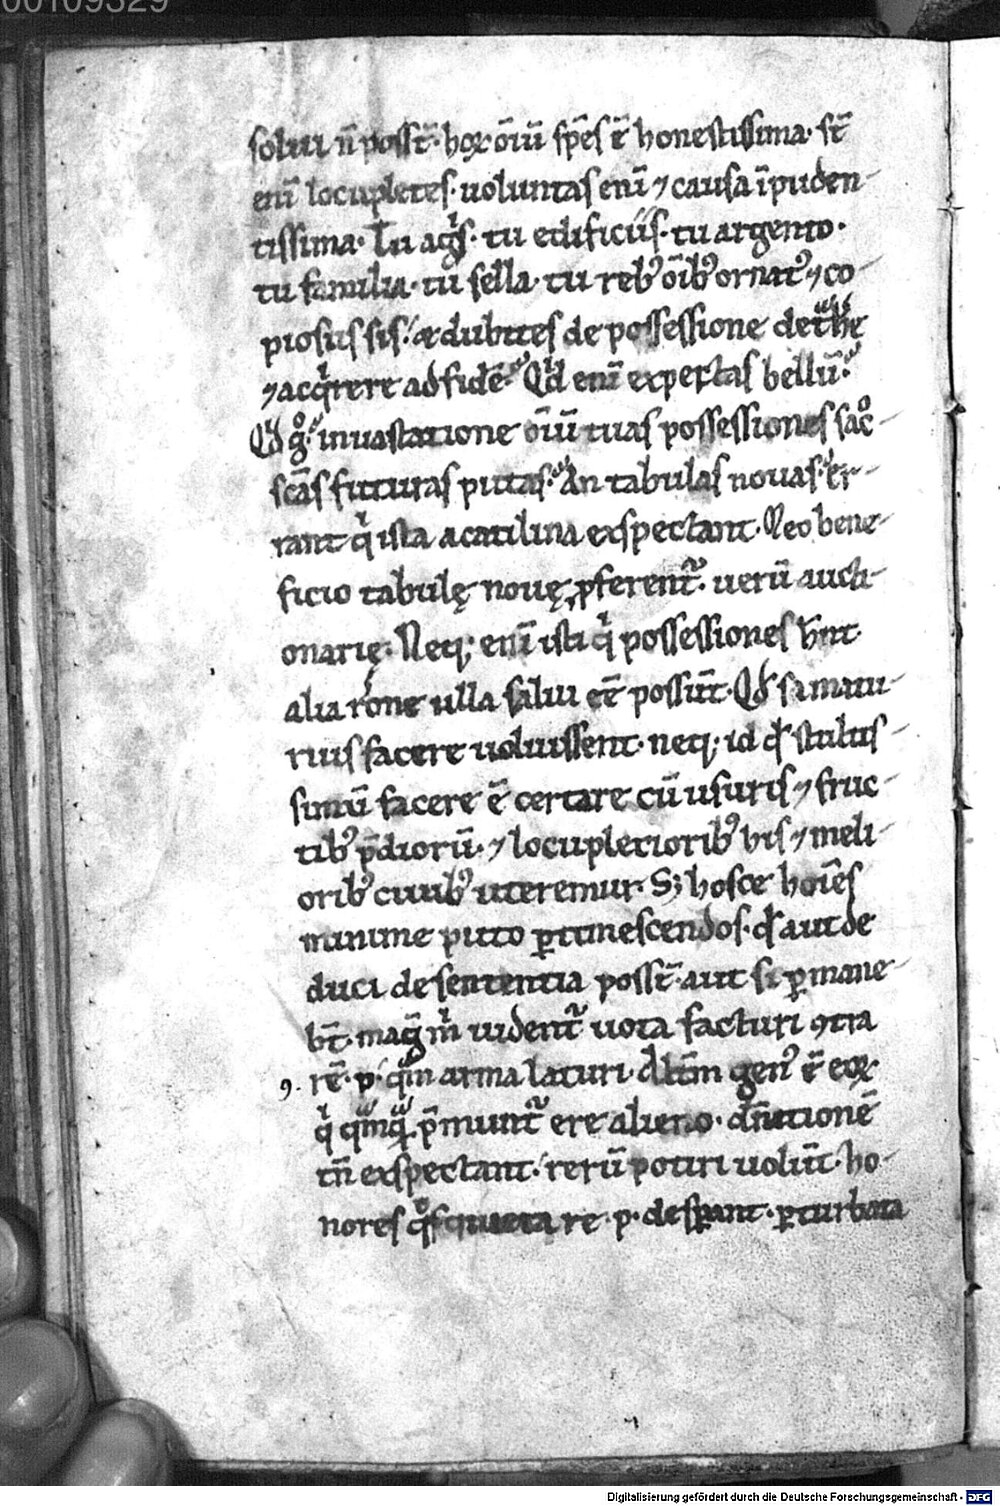 00109329
solui n̄ posst̄· hoꝝ oīū sp̄es ē honestissima· st̄
eni locupletes· uoluntas enī ⁊ causa īpuden-
tissima· Tu agͥs· tu edificiis· tu argento·
tu familia· tu sella· tu rebꝰ oībꝰ ornatꝰ ⁊ co-
piosus sis· æ dubites de possessione det̄he
⁊ acqͥrere ad fidē· Qͥd enī expectas bellū·
Qͥd gͦ· in uastatione oīū tuas possessiones sac̊-
scas futuras putas· An tabulas nouas· er-
rant qͥ ista a catilina exspectant· Meo bene-
ficio tabulę nouę ꝓferent᷑· uerū aucti-
onarię· Neqꝫ enī isti qͥ possessiones hn̄t
alia rōne ulla salui eē possunt̄· Qd̓ si matu-
rius facere uoluissent· neqꝫ id qd̓ stultis-
simū facere ē certare cū usuris ⁊ fruc-
tibꝰ p̄diorū· ⁊ locupletioribꝰ his ⁊ meli-
oribꝰ ciuibꝰ uteremur· Sꝫ hosce hoīes
minime puto ꝑtimescendos· qd̓ aut de
duci de sententia posst̄· aut si ꝑmane-
bt̄· magͥ m̄ uident᷑ uota facturi ꝯtra
9. rē· p· qͣm arma laturi· Altm̄ genꝰ ē eoꝝ
qͥ qͣmqͣ p̄munt᷑ ere alieno· dn̄ationē
tn̄ exspectant· rerū potiri uolūt· ho-
nores qͦs quieta re· p· desꝑant· ꝑturbata
Digitalisierung gefördert durch die Deutsche Forschungsgemeinschaft - DFG